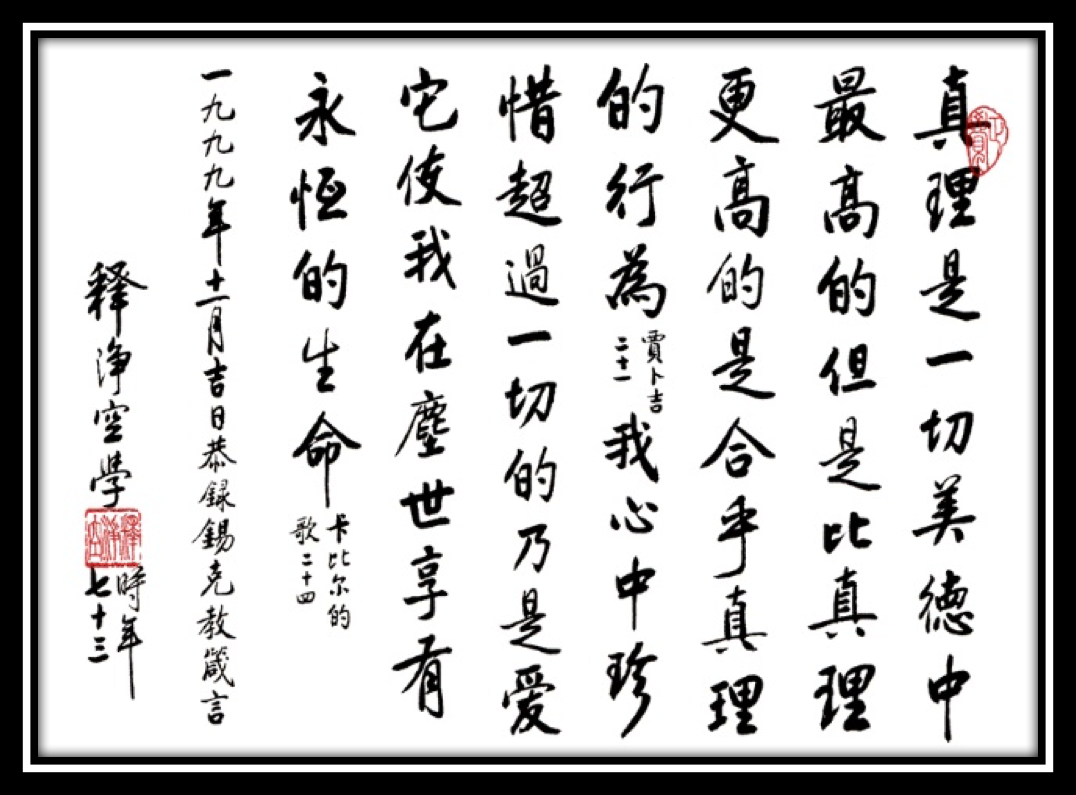 真理是一切美德中
最高的但是比真理
更高的是合乎真理
的行為賈卜吉二十一我心中珍
惜超過一切的乃是愛
它使我在塵世享有
永恆的生命卡比尔的歌二十四
一九九九年十一月吉日恭録錫克教箴言
释淨空學時年七十三